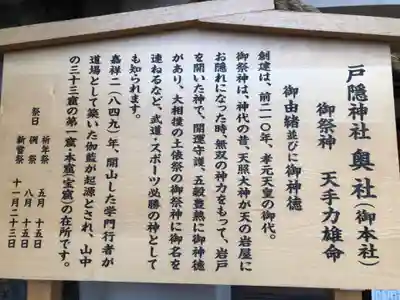 戸隠神社 奥社(御本社)
御祭神 天手力雄命
御由緒並びに御神徳
創建は、前二一〇年、孝元天皇の御代。
御祭神は、神代の昔、天照大神が天の岩屋に
お隠れになった時、無双の神力をもって、岩戸
を開いた神で、開運守護、五穀豊熟に御神徳
があり、大相撲の土俵祭の御祭神に御名を
連ねるなど、武道・スポーツ必勝の神として
も知られます。
嘉祥二(八四九)年、開山した学門行者が
道場として築いた伽藍が起源とされ、山中
の三十三窟の第一窟「本窟(宝窟)」の在所です。
祭日 祈年祭 五月十五日
例祭 八月十五日
新嘗祭 十一月二十三日